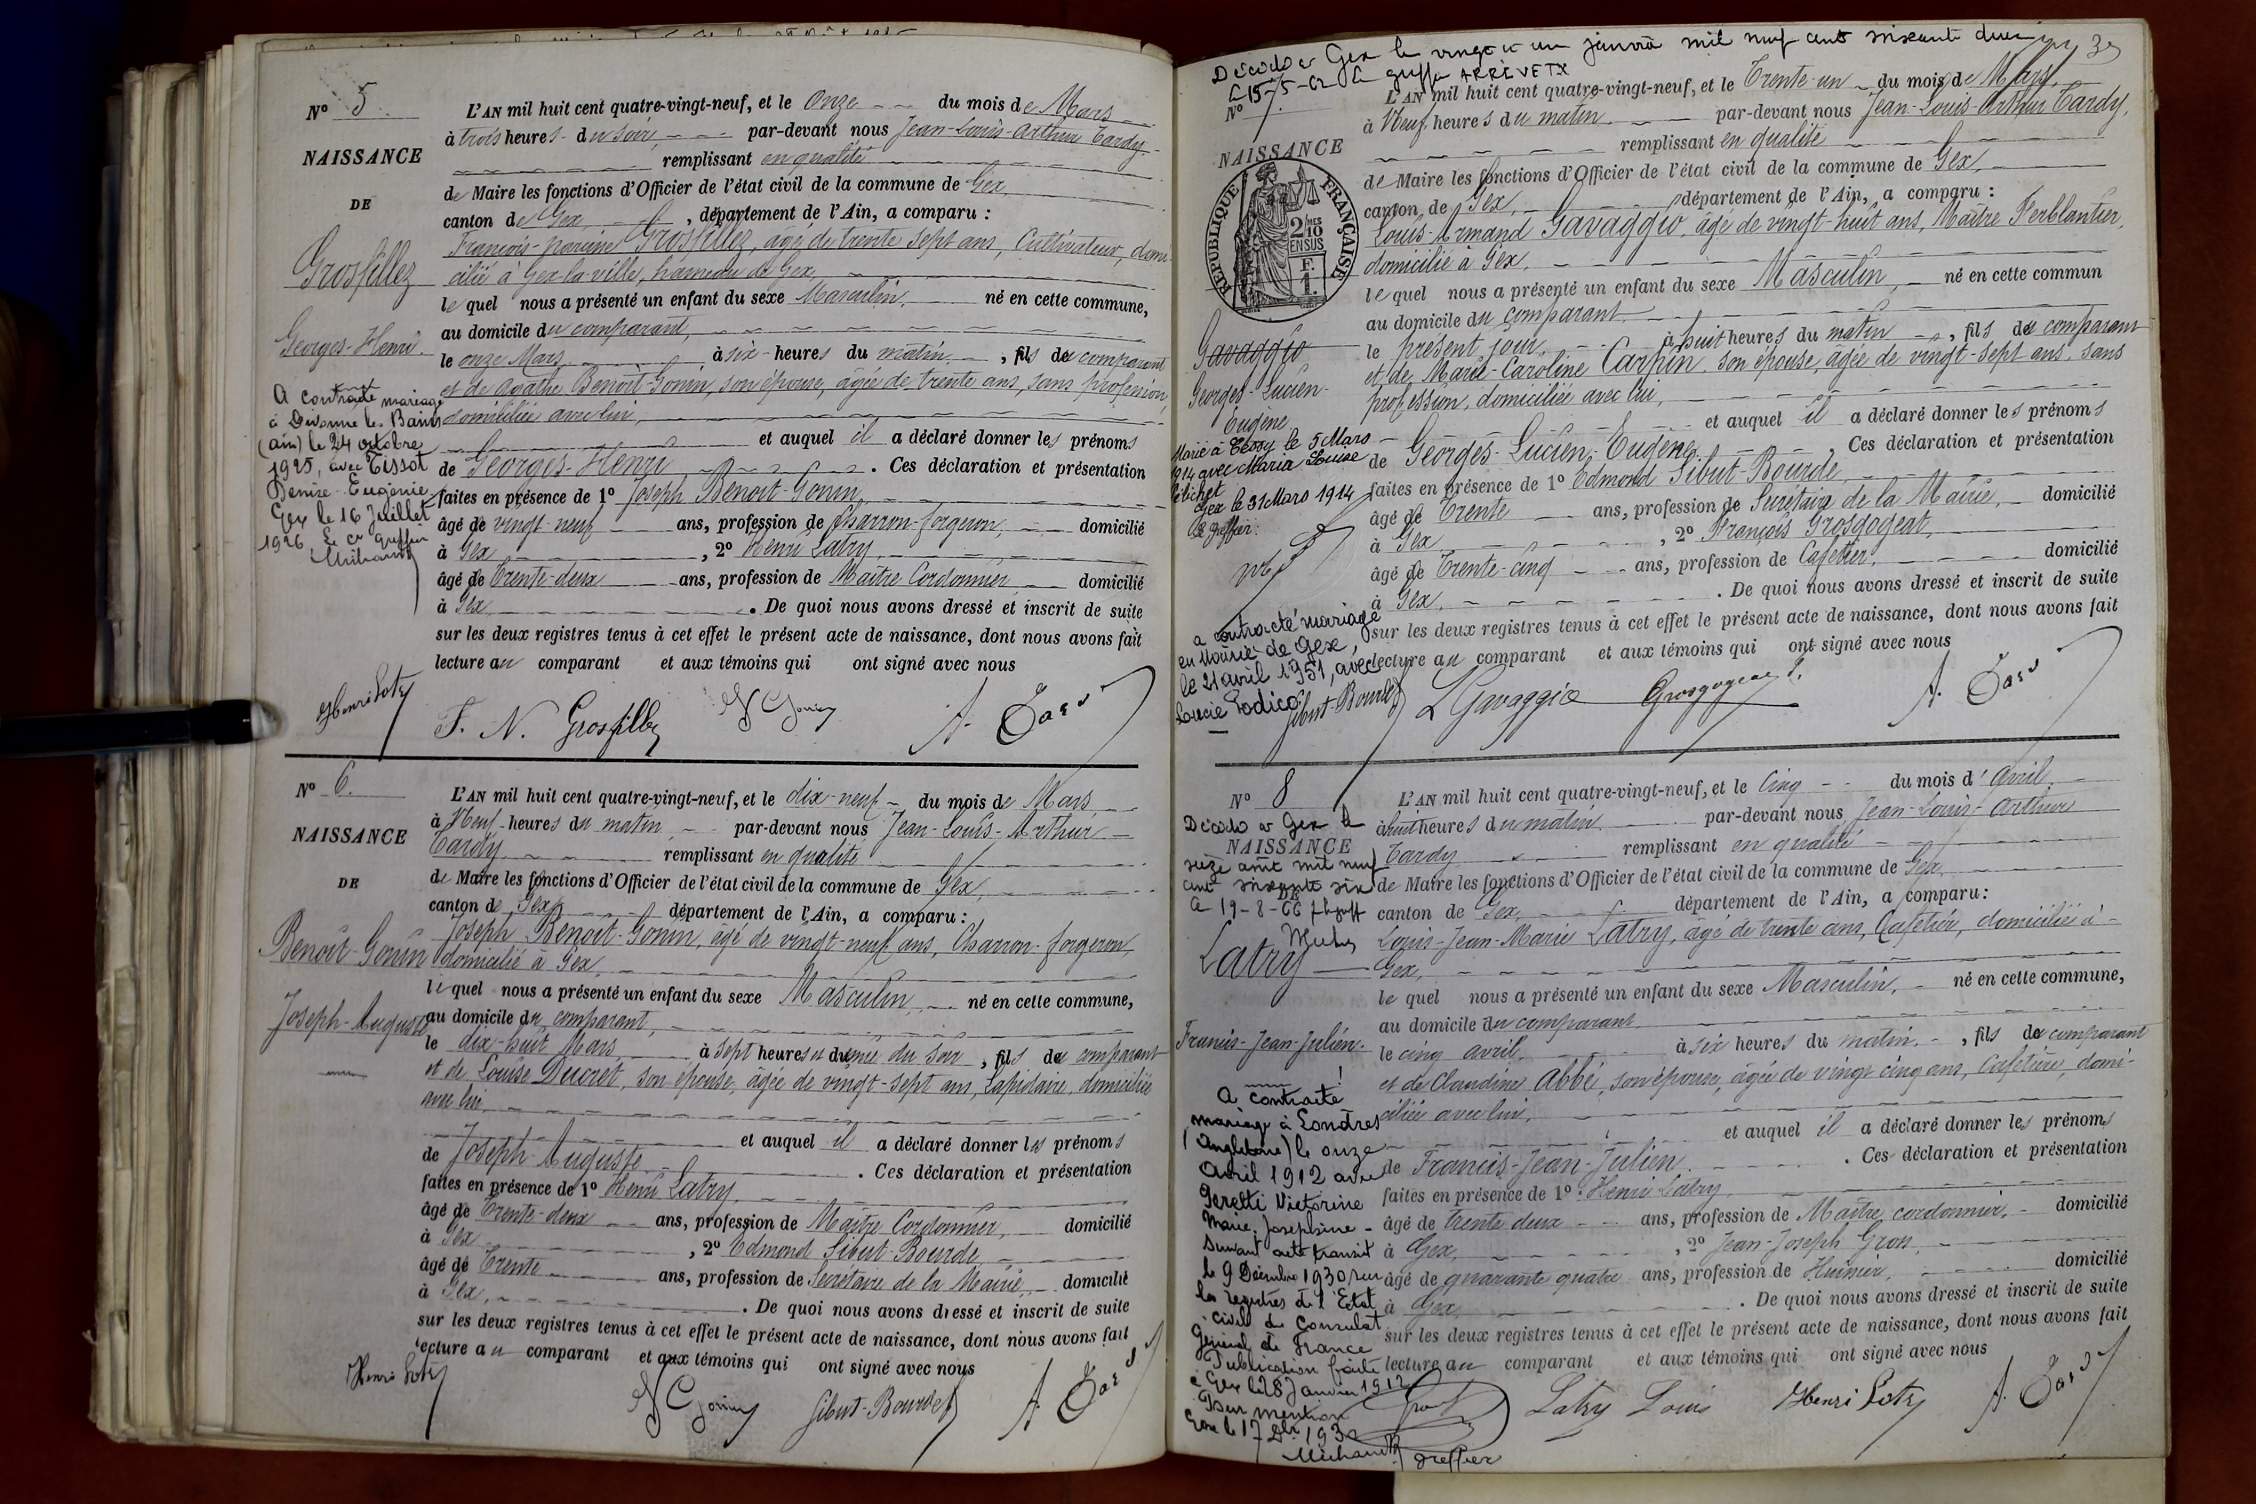 Nº 5.
NAISSANCE
DE
Grosfillez
Georges-Henri.
A contracté mariage
à Divonne les Bains
(ain) le 24 octobre
1925, avec Tissot
Denise Eugénie
Gex le 16 Juillet
1926 Le Cr Greffier
Michaud
L'AN mil huit cent quatre-vingt-neuf, et le Onze du mois de Mars
à trois heures du soir, par-devant nous Jean-Louis-Arthur Tardy,
remplissant en qualité
de Maire les fonctions d'Officier de l'état civil de la commune de Gex,
canton de Gex, département de l'Ain, a comparu :
François-narcisse Grosfillez, âgé de trente sept ans, Cultivateur, domi-
cilié à Gex-la-ville, hameau de Gex,
le quel nous a présenté un enfant du sexe Masculin, né en cette commune,
au domicile du comparant,
le onze Mars, à six heures du matin, fils du comparant
et de Agathe Benoit-Gonin, son épouse, âgée de trente ans, sans profession,
domiciliée avec lui,
et auquel il a déclaré donner les prénoms
de Georges-Henri. Ces déclaration et présentation
faites en présence de 1º Joseph Benoit-Gonin,
âgé de vingt-neuf ans, profession de Charron-forgeron, domicilié
à Gex, 2º Henri Latry,
âgé de Trente-deux ans, profession de Maître Cordonnier domicilié
à Gex. De quoi nous avons dressé et inscrit de suite
sur les deux registres tenus à cet effet le présent acte de naissance, dont nous avons fait
lecture au comparant et aux témoins qui ont signé avec nous
Henri Latry F. N. Grosfillez A. Tardy
Nº 6.
NAISSANCE
DE
Benoît-Gonin
Joseph-Auguste
L'AN mil huit cent quatre-vingt-neuf, et le dix-neuf du mois de Mars
à Neuf heures du matin par-devant nous Jean-Louis-Arthur
Tardy remplissant en qualité
de Maire les fonctions d'Officier de l'état civil de la commune de Gex,
canton de Gex, département de l'Ain, a comparu :
Joseph Benoit-Gonin, âgé de vingt-neuf ans, Charron-forgeron,
domicilié à Gex,
le quel nous a présenté un enfant du sexe Masculin, né en cette commune,
au domicile du comparant,
le dix-huit Mars à sept heures et demie du soir, fils du comparant
et de Louise Ducret, son épouse, âgée de vingt-sept ans, Lapidaire, domiciliée
avec lui,
et auquel il a déclaré donner les prénoms
de Joseph-Auguste. Ces déclaration et présentation
faites en présence de 1º Henri Latry,
âgé de Trente-deux ans, profession de Maître Cordonnier, domicilié
à Gex, 2º Edmond Sibut-Bourde,
âgé de Trente ans, profession de Secrétaire de la Mairie, domicilié
à Gex,. De quoi nous avons dressé et inscrit de suite
sur les deux registres tenus à cet effet le présent acte de naissance, dont nous avons fait
lecture au comparant et aux témoins qui ont signé avec nous
Henri Latry Sibut-Bourde A. Tardy
Décédé à Gex le vingt et un janvier mil neuf cent soixante deux
Le 15-5-62 Le greffier ARRÈVETX
39
Nº 7.
NAISSANCE
RÉPUBLIQUE FRANÇAISE
2/10 MES
EN SUS
F.
1.
Gavaggio
Georges-Lucien-
Eugène
Marié à Cessy le 5 Mars
1914 avec Maria Louise
Gex le 31 Mars 1914
Le greffier:
a contracté mariage
en Mairie de Gex,
le 21 avril 1951, avec
Lucie Todico.
L'AN mil huit cent quatre-vingt-neuf, et le Trente-un du mois de Mars,
à Neuf heures du matin par-devant nous Jean-Louis-Arthur Tardy,
remplissant en qualité
de Maire les fonctions d'Officier de l'état civil de la commune de Gex,
canton de Gex, département de l'Ain, a comparu :
Louis-Armand Gavaggio, âgé de vingt-huit ans, Maître Ferblantier,
domicilié à Gex,
le quel nous a présenté un enfant du sexe Masculin, né en cette commun
au domicile du comparant
le présent jour, à huit heures du matin, fils du comparant
et de Marie-Caroline Carpin, son épouse, âgée de vingt-sept ans, sans
profession, domiciliée avec lui,
et auquel il a déclaré donner les prénoms
de Georges-Lucien-Eugène. Ces déclaration et présentation
faites en présence de 1º Edmond Sibut-Bourde,
âgé de Trente ans, profession de Secrétaire de la Mairie, domicilié
à Gex, 2º François Grosgogeat,
âgé de Trente-cinq ans, profession de Cafetier, domicilié
à Gex,. De quoi nous avons dressé et inscrit de suite
sur les deux registres tenus à cet effet le présent acte de naissance, dont nous avons fait
lecture au comparant et aux témoins qui ont signé avec nous
Sibut-Bourde L Gavaggio Grosgogeat A. Tardy
Nº 8
Décédé à Gex le
NAISSANCE
seize août mil neuf
cent soixante six
DE
Le 19-8-66
Latry
Francis-Jean-Julien.
A contracté
mariage à Londres
(Angleterre) le onze
Avril 1912 avec
Geretti Victorine
Marie Josephine
suivant acte transcrit
le 9 Décembre 1930 sur
les registres de l'Etat
civil du Consulat
Général de France
Publication faite
à Gex le 28 Janvier 1912
Pour mention
Gex le 17 Dbre 1930
Michaud greffier
L'AN mil huit cent quatre-vingt-neuf, et le Cinq du mois d'Avril,
à huit heures du matin par-devant nous Jean-Louis-Arthur
Tardy remplissant en qualité
de Maire les fonctions d'Officier de l'état civil de la commune de Gex,
canton de Gex, département de l'Ain, a comparu:
Louis-Jean-Marie Latry, âgé de trente ans, Cafetier, domicilié à
Gex,
le quel nous a présenté un enfant du sexe Masculin, né en cette commune,
au domicile du comparant
le cinq avril, à six heures du matin, fils du comparant
et de Claudine Abbé, son épouse, âgée de vingt cinq ans, Cafetière, domi-
ciliée avec lui,
et auquel il a déclaré donner les prénoms
de Francis-Jean-Julien. Ces déclaration et présentation
faites en présence de 1º Henri Latry,
âgé de trente deux ans, profession de Maître cordonnier, domicilié
à Gex, 2º Jean-Joseph Gron,
âgé de quarante quatre ans, profession de Huissier, domicilié
à Gex,. De quoi nous avons dressé et inscrit de suite
sur les deux registres tenus à cet effet le présent acte de naissance, dont nous avons fait
lecture au comparant et aux témoins qui ont signé avec nous
Latry Louis Henri Latry A. Tardy